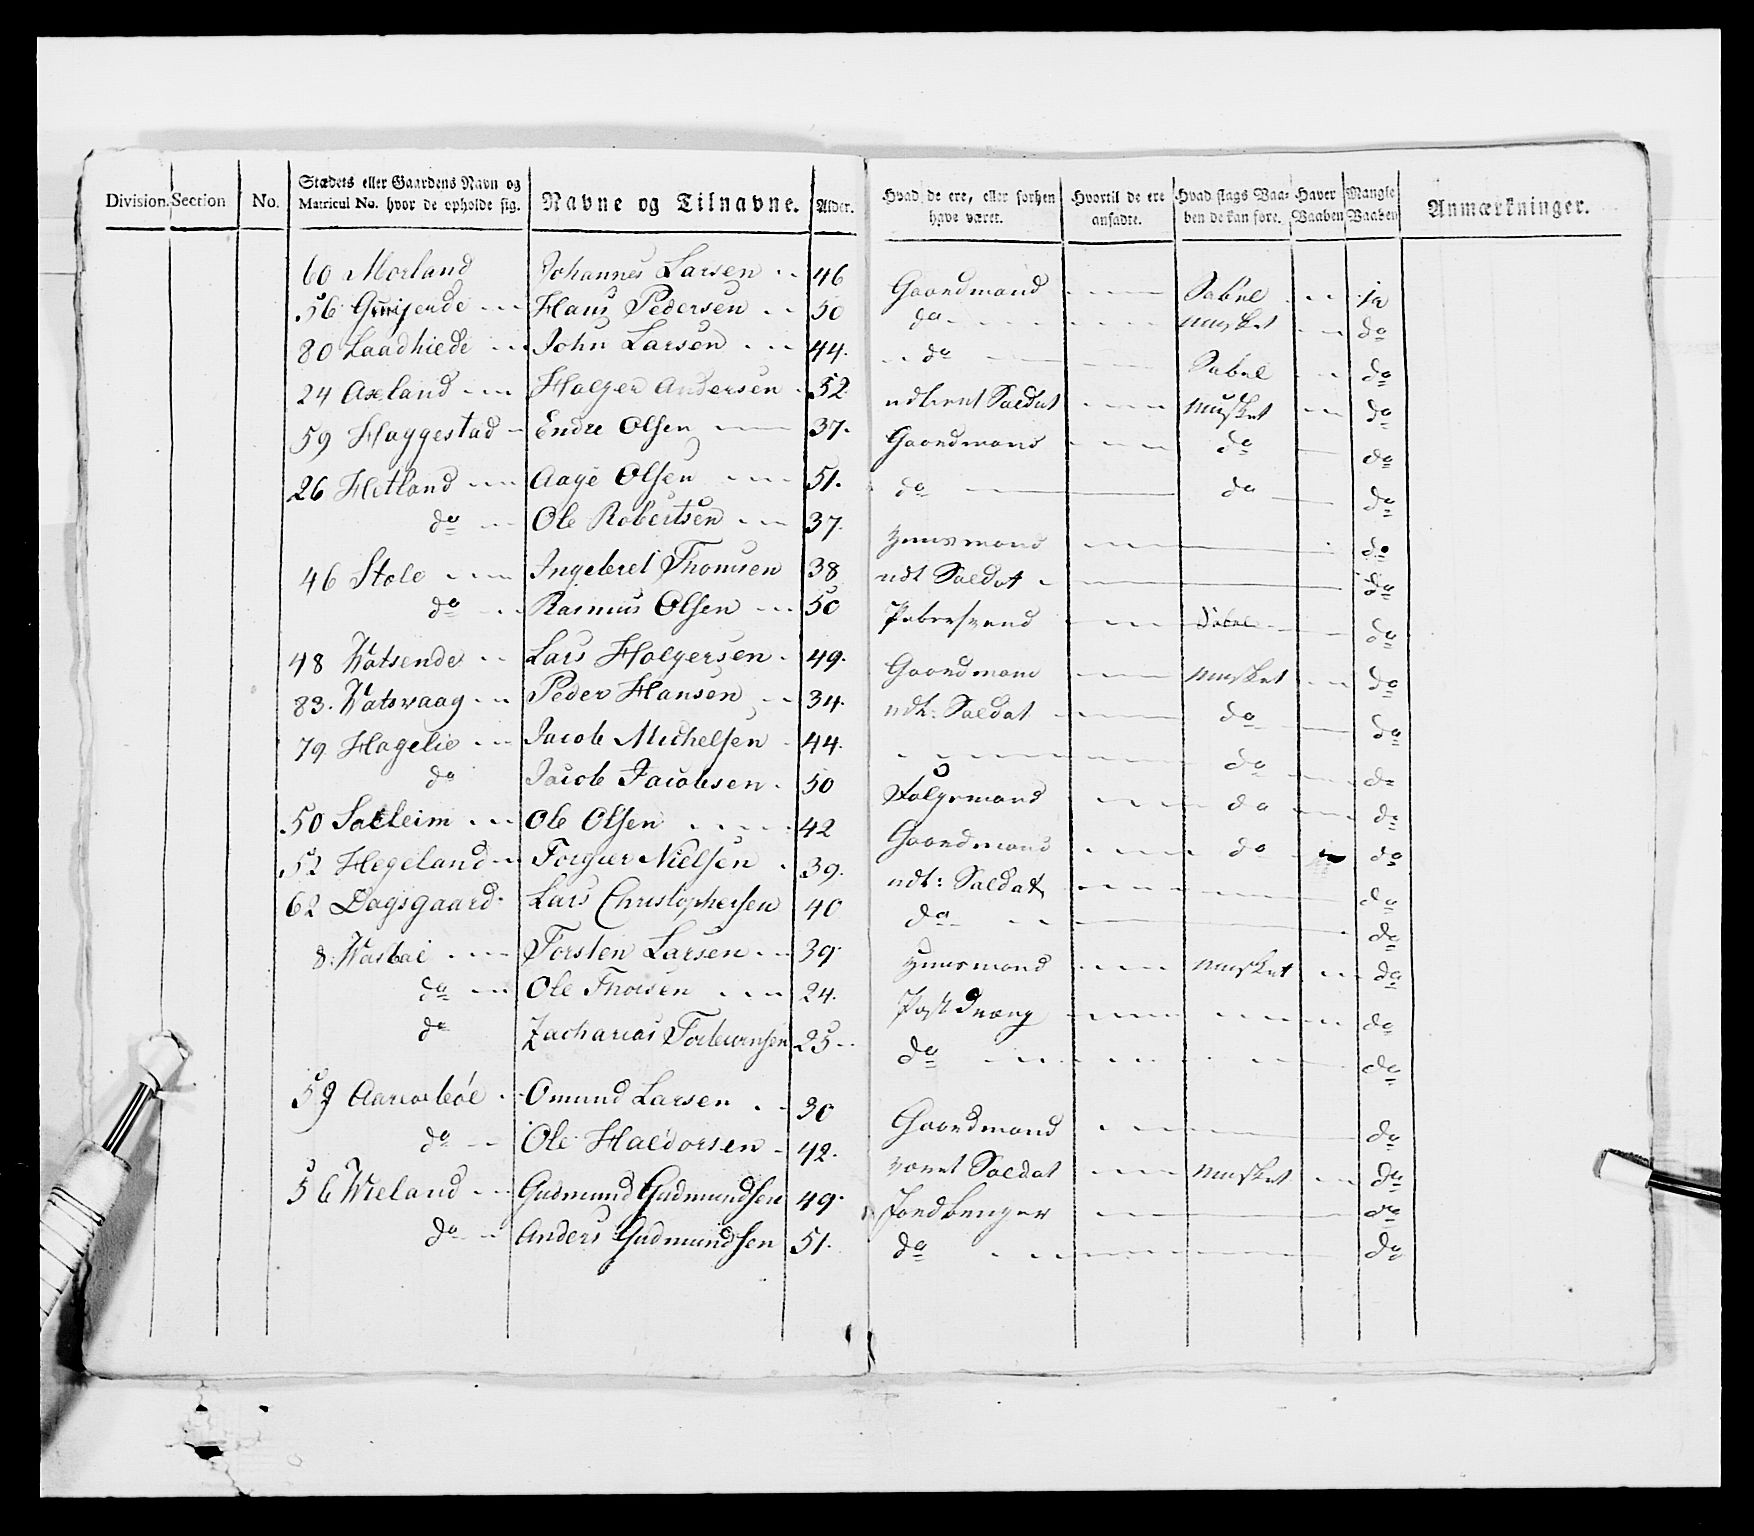 Division. Section No. Stædets eller Gaardens Navn og Matricul No. hvor de opholde sig. Navne og Tilnavne. Alder. Hvad de ere, eller forhen have været. Hvortil de ere ansadte. Hvad slags Vaaben de kan føre. Haver Vaaben Mangle Vaaben Anmærkninger.
60 Morland Johannes Larsen 46 Gaardmand Sabel ja
56 Hans Pedersen 50 do musket do
80 Laadhiede John Larsen 44. do Sabel do
24 Axeland Holger Andersen 52. udtient Saldat musket do
59 Haggestad Endre Olsen 37. Gaardmand do do
26 Hetland Aage Olsen 51. do do do
do Ole Robertsen 37. Huusmand do
46 Stole Ingebret Thomsen 38 udt Saldat do
do Rasmus Olsen 50 Pebersvend Sabel do
48 Watsende Lars Holgersen 49. Gaardmand musket do
83. Watsvaag Peder Hansen 34. udt: Saldat do do
79 Hagelie Jacob Michelsen 44. do do
do Jacob Jacobsen 50 Følgemand do do
50 Salleim Ole Olsen 42 Gaardmand do do
52 Hegeland Torgier Nielsen 39. udt: Saldat do
62 Dagsgaard Lars Christophersen 40 do do
8. Torsten Larsen 39 Huusmand musket do
do Ole Thorsen 24. Post dreng do
do Zacharias Torbiørnsen 25 do do
59 Omund Larsen 30 Gaardmand do
do Ole Haldorsen 42. været Saldat musket do
56 Wieland Gudmund Gudmundsen 49. Jordbruger do
do Anders Gudmundsen 51. do do